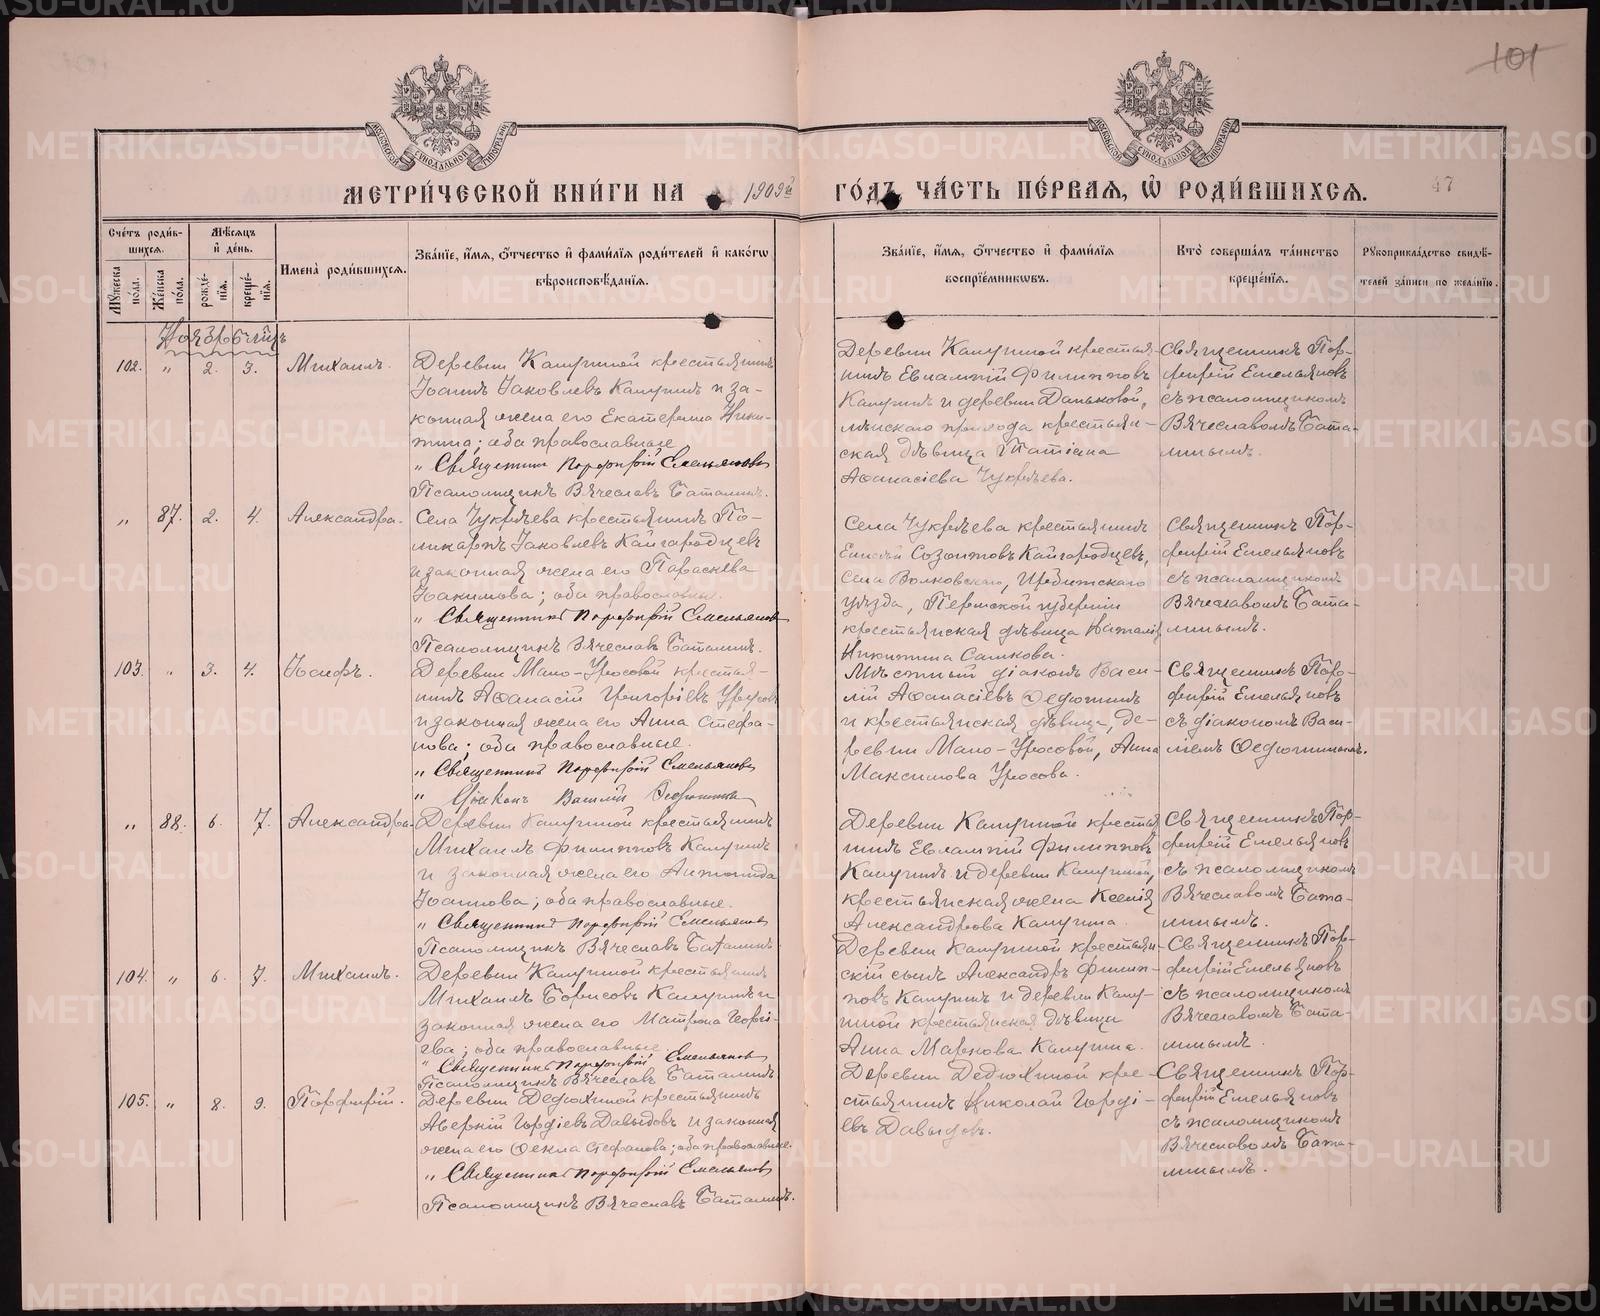 101
МЕТРИ́ЧЕСКОЙ КНИ́ГИ НА 1909й ГО́ДЪ, ЧА́СТЬ ПЕ́РВАЯ, Ѡ РОДИ́ВШИХСЯ.
47
Сче́тъ роди́в-
шихся.
Мѣ́сяцъ
и҆ де́нь.
Му́жеска по́ла.
Же́нска по́ла.
рожде́-
нїя.
креще́-
нїя.
Имена̀ роди́вшихся.
Зва́нїе, и҆́мя, ѻ҆́тчество и҆ фами́лїя роди́телей и҆ како́гѡ
вѣроисповѣ́данїя.
Зва́нїе, и҆́мя, ѻ҆́тчество и҆ фами́лїя
воспрїе́мникѡвъ.
Кто̀ соверша́лъ та́инство
креще́нїя.
Рꙋкоприкла́дство свидѣ́-
телей за́писи по жела́нїю.
Ноябрь м-цъ
102. " 2. 3. Михаилъ.
Деревни Калугиной крестьянинъ
Іоаннъ Іаковлевъ Калугинъ и за-
конная жена его Екатерина Ники-
тина; оба православные
" Священникъ Порфирій Емельяновъ
Псаломщикъ Вячеславъ Баталинъ.
Деревни Калугиной крестья-
нинъ Евлампій Филипповъ
Калугинъ и деревни Даньковой,
прихода крестьян-
ская дѣвица Татіана
Аѳанасіева Чукрѣева.
Священникъ Пор-
фирій Емельяновъ
съ псаломщикомъ
Вячеславомъ Бата-
линымъ.
" 87. 2. 4. Александра.
Села Чукрѣева крестьянинъ По-
ликарпъ Іаковлевъ Кайгородцевъ
и законная жена его Параскева
Іоакимова; оба православны.
" Священникъ Порфирій Емельяновъ
Псаломщикъ Вячеславъ Баталинъ.
Села Чукрѣева крестьянинъ
Елисей Созонтовъ Кайгородцевъ,
села Волковскаго, Ирбитскаго
уѣзда, Пермской губерніи
крестьянская дѣвица Наталія
Никитина Сашкова.
Священникъ Пор-
фирій Емельяновъ
съ псаломщикомъ
Вячеславомъ Бата-
линымъ.
103. " 3. 4. Іосифъ.
Деревни Мало-Уросовой крестья-
нинъ Аѳанасій Григоріевъ Уросовъ
и законная жена его Анна Стефа-
нова; оба православные.
" Священникъ Порфирій Емельяновъ
" Діаконъ Василій Ѳедюшинъ
Мѣстный діаконъ Васи-
лій Аѳанасіевъ Ѳедюшинъ
и крестьянская дѣвица, де-
ревни Мало-Уросовой, Анна
Максимова Уросова.
Священникъ Пор-
фирій Емельяновъ
съ діакономъ Васи-
ліемъ Ѳедюшинымъ.
" 88. 6. 7. Александра.
Деревни Калугиной крестьянинъ
Михаилъ Филипповъ Калугинъ
и законная жена его Антонида
Іоаннова; оба православные.
" Священникъ Порфирій Емельяновъ
Псаломщикъ Вячеславъ Баталинъ.
Деревни Калугиной крестья-
нинъ Евлампій Филипповъ
Калугинъ и деревни Калугиной,
крестьянская жена Ксенія
Александрова Калугина.
Священникъ Пор-
фирій Емельяновъ
съ псаломщикомъ
Вячеславомъ Бата-
линымъ.
104. " 6. 7. Михаилъ.
Деревни Калугиной крестьянинъ
Михаилъ Борисовъ Калугинъ и
законная жена его Матрона Георгі-
ева; оба православные.
" Священникъ Порфирій Емельяновъ
Псаломщикъ Вячеславъ Баталинъ
Деревни Калугиной крестьян-
скій сынъ Александръ Филип-
повъ Калугинъ и деревни Калу-
гиной крестьянская дѣвица
Анна Маркова Калугина.
Священникъ Пор-
фирій Емельяновъ
съ псаломщикомъ
Вячеславомъ Бата-
линымъ.
105. " 8. 9. Порфирій.
Деревни Дедюхиной крестьянинъ
Аверкій Гордіевъ Давыдовъ и законная
жена его Ѳекла Стефанова; оба православные.
" Священникъ Порфирій Емельяновъ
Псаломщикъ Вячеславъ Баталинъ.
Деревни Дедюхиной кре-
стьянинъ Николай Горді-
евъ Давыдовъ.
Священникъ Пор-
фирій Емельяновъ
съ псаломщикомъ
Вячеславомъ Бата-
линымъ.
METRIKI.GASO-URAL.RU